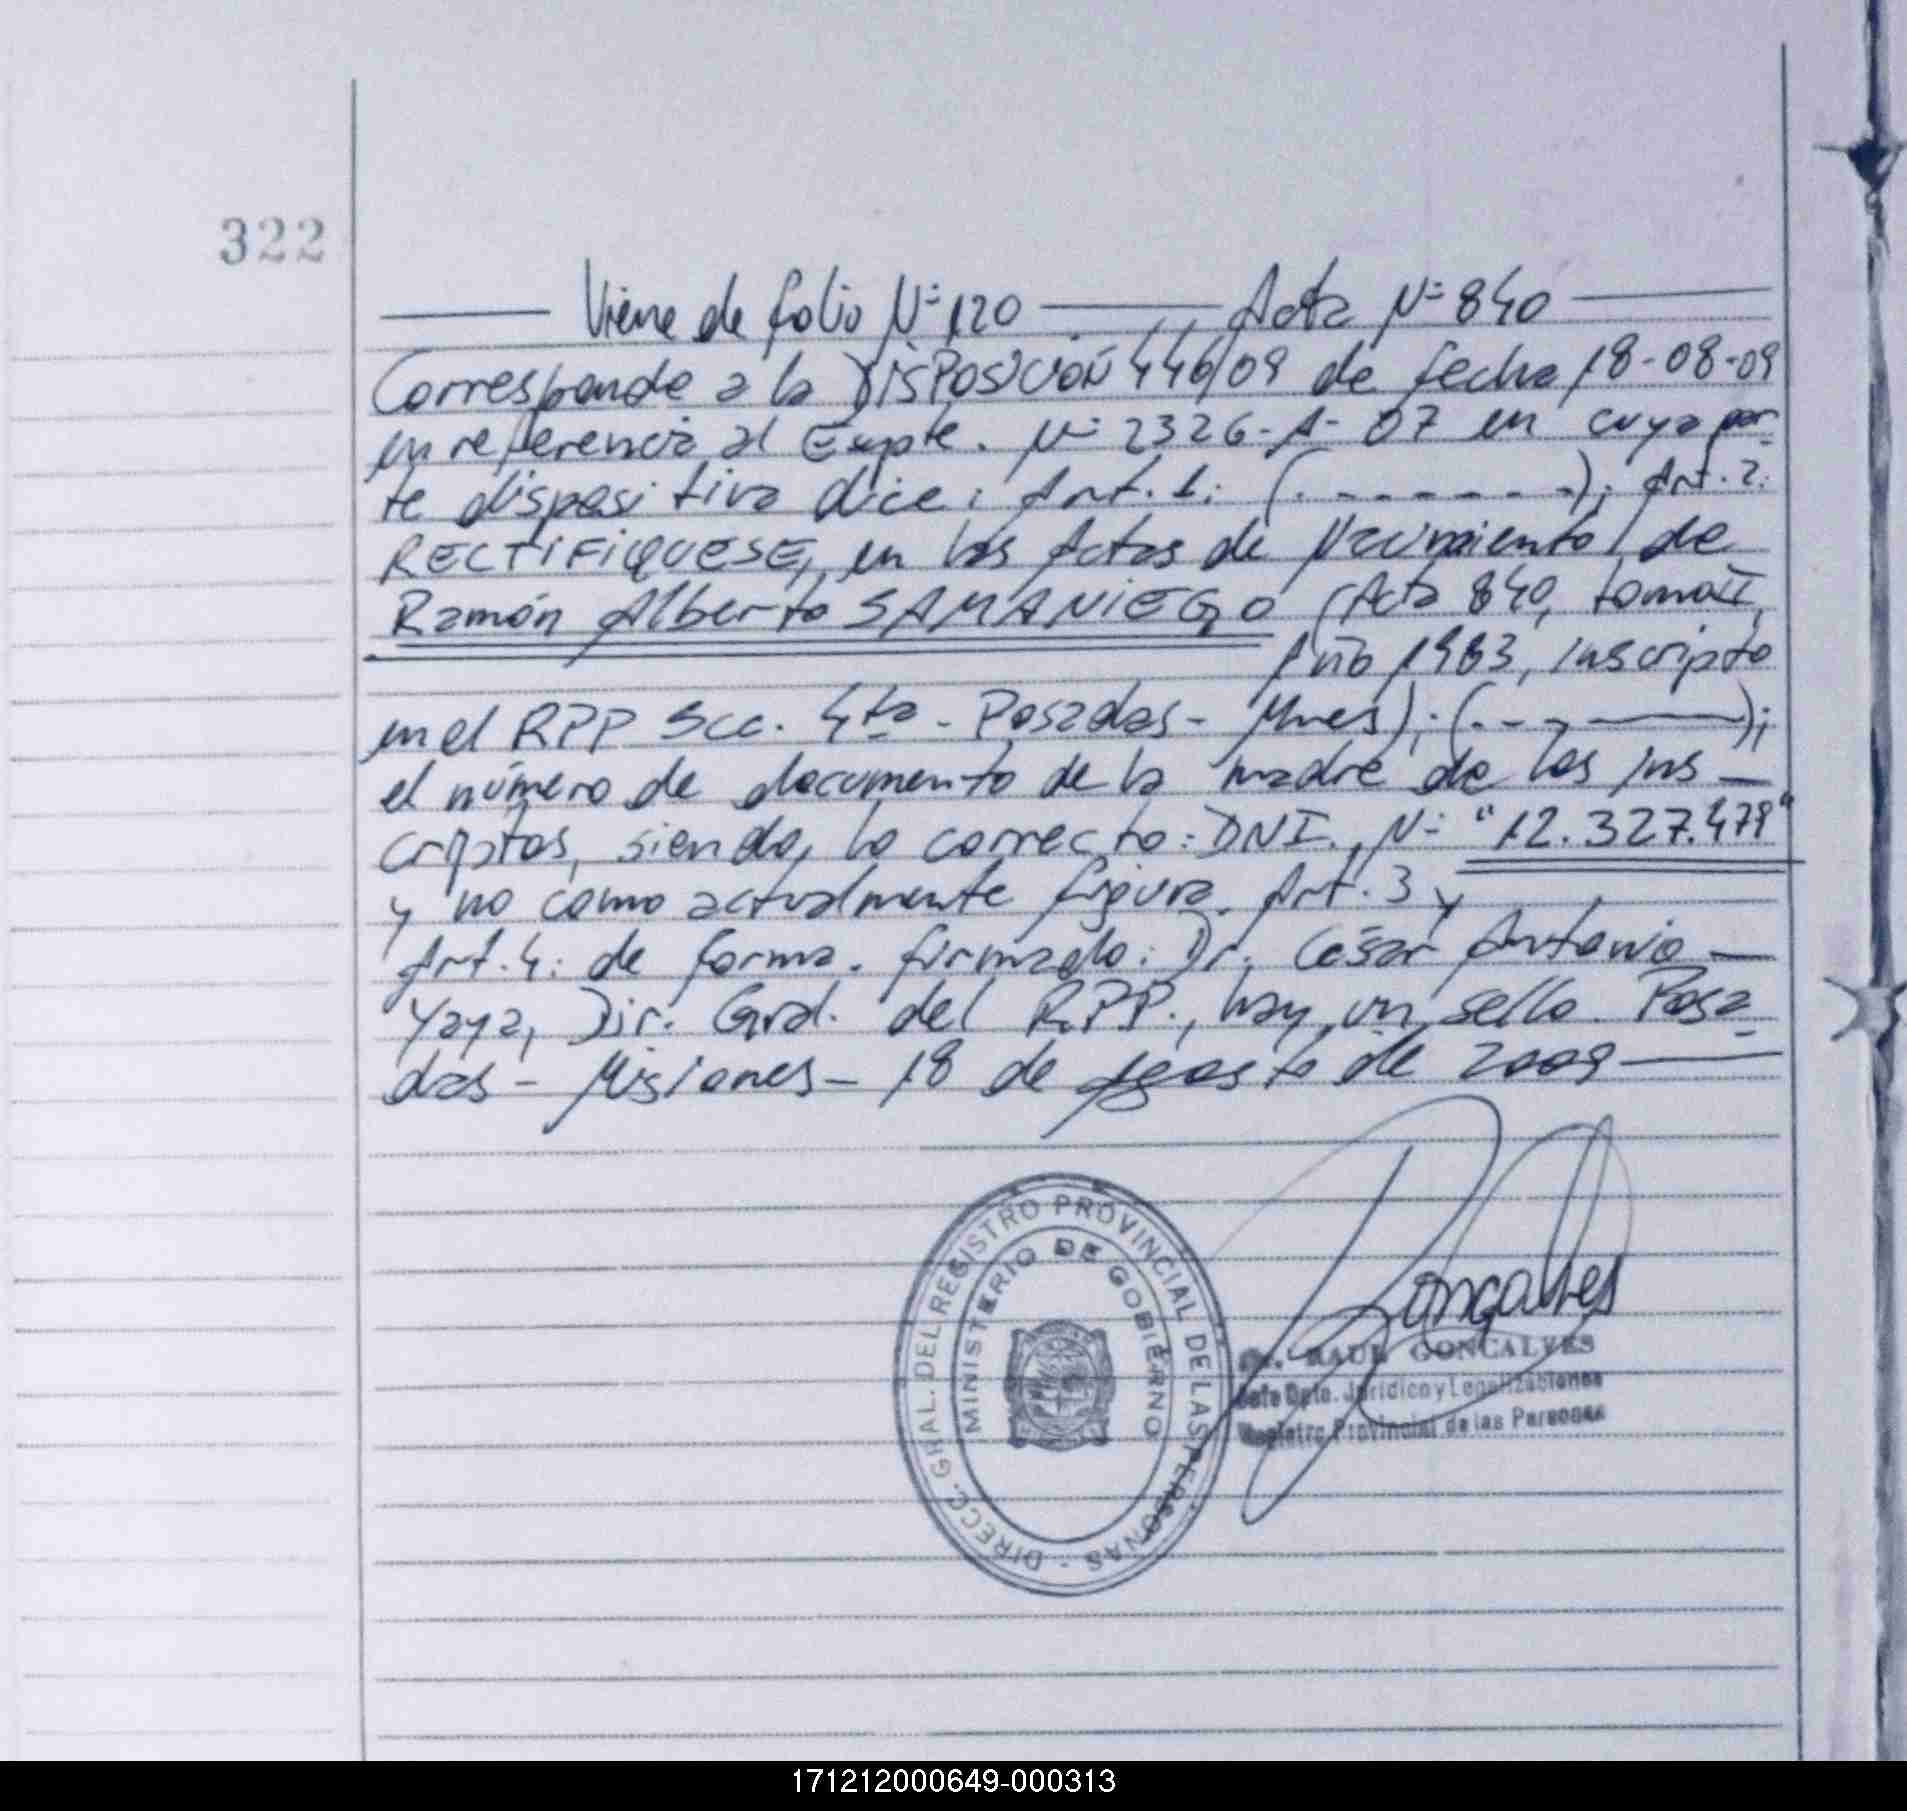 322
Viene de folio Nº 120 Acta Nº 840
Corresponde a la DISPOSICIÓN 446/09 de fecha 18-08-09
en referencia al Expte. Nº 2326-A-07 en cuya par-
te dispositiva dice: Art. 1: (. - - - - - - -); Art. 2:
RECTIFIQUESE, en las Actas de Nacimiento de
Ramón Alberto SAMANIEGO (Acta 840, tomo II,
Año 1983, inscripto
en el RPP Scc. 4ta - Posadas - Mnes); (- - - ——);
el número de documento de la madre de los ins-
criptos, siendo, lo correcto: DNI. Nº "12.327.479"
y no como actualmente figura. Art. 3 y
Art. 4: de forma. firmado: Dr. César Antonio —
Yaya, Dir. Gral. del RPP., hay un sello. Posa-
das - Misiones - 18 de Agosto de 2009 ——
DIRECC. GRAL. DEL REGISTRO PROVINCIAL DE LAS PERSONAS -
MINISTERIO DE GOBIERNO
Goncalves
Dr. RAUL GONCALVES
Jefe Dpto. Jurídico y Legalizaciones
Registro Provincial de las Personas
171212000649-000313